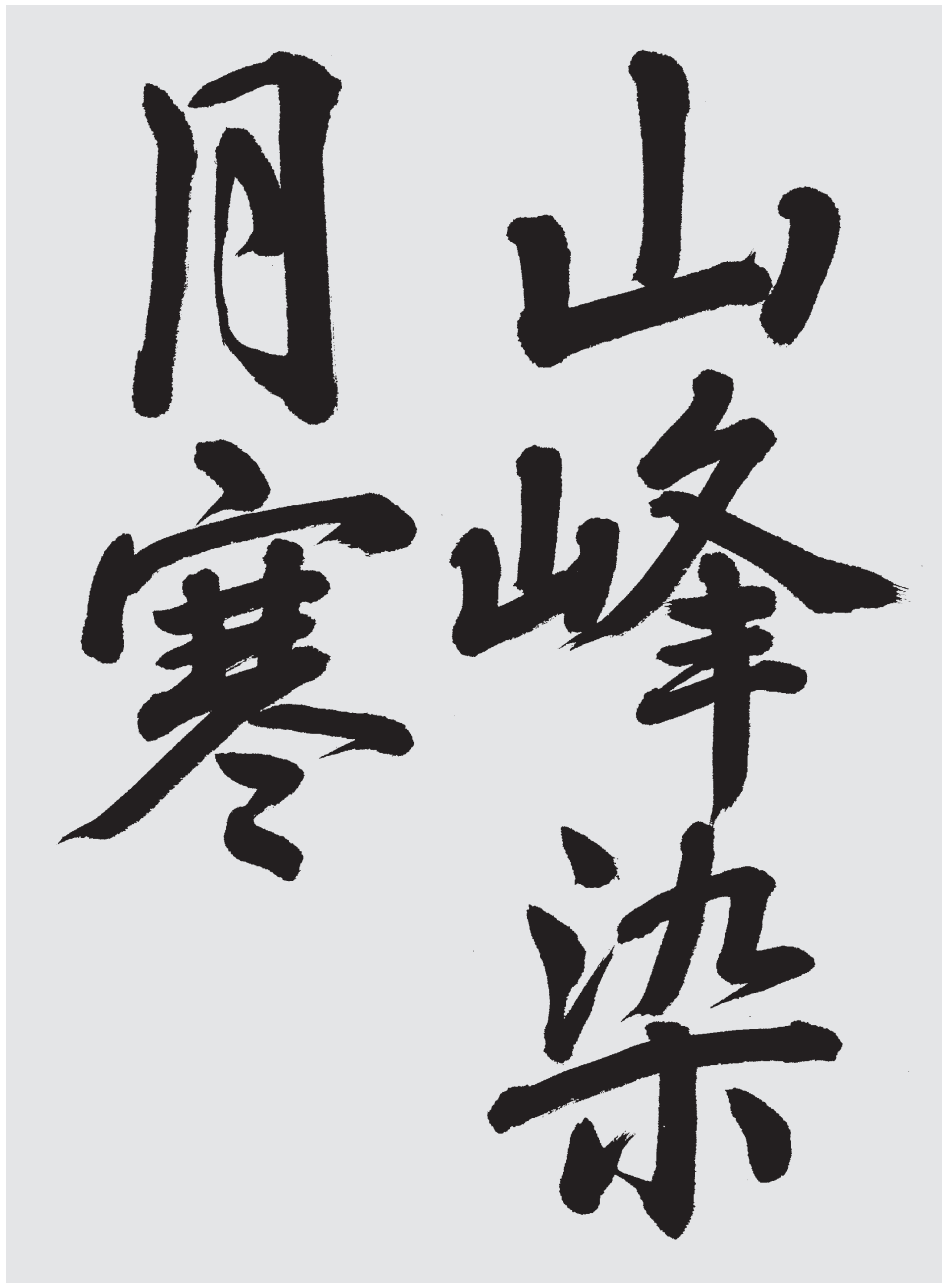 山峰染
月寒